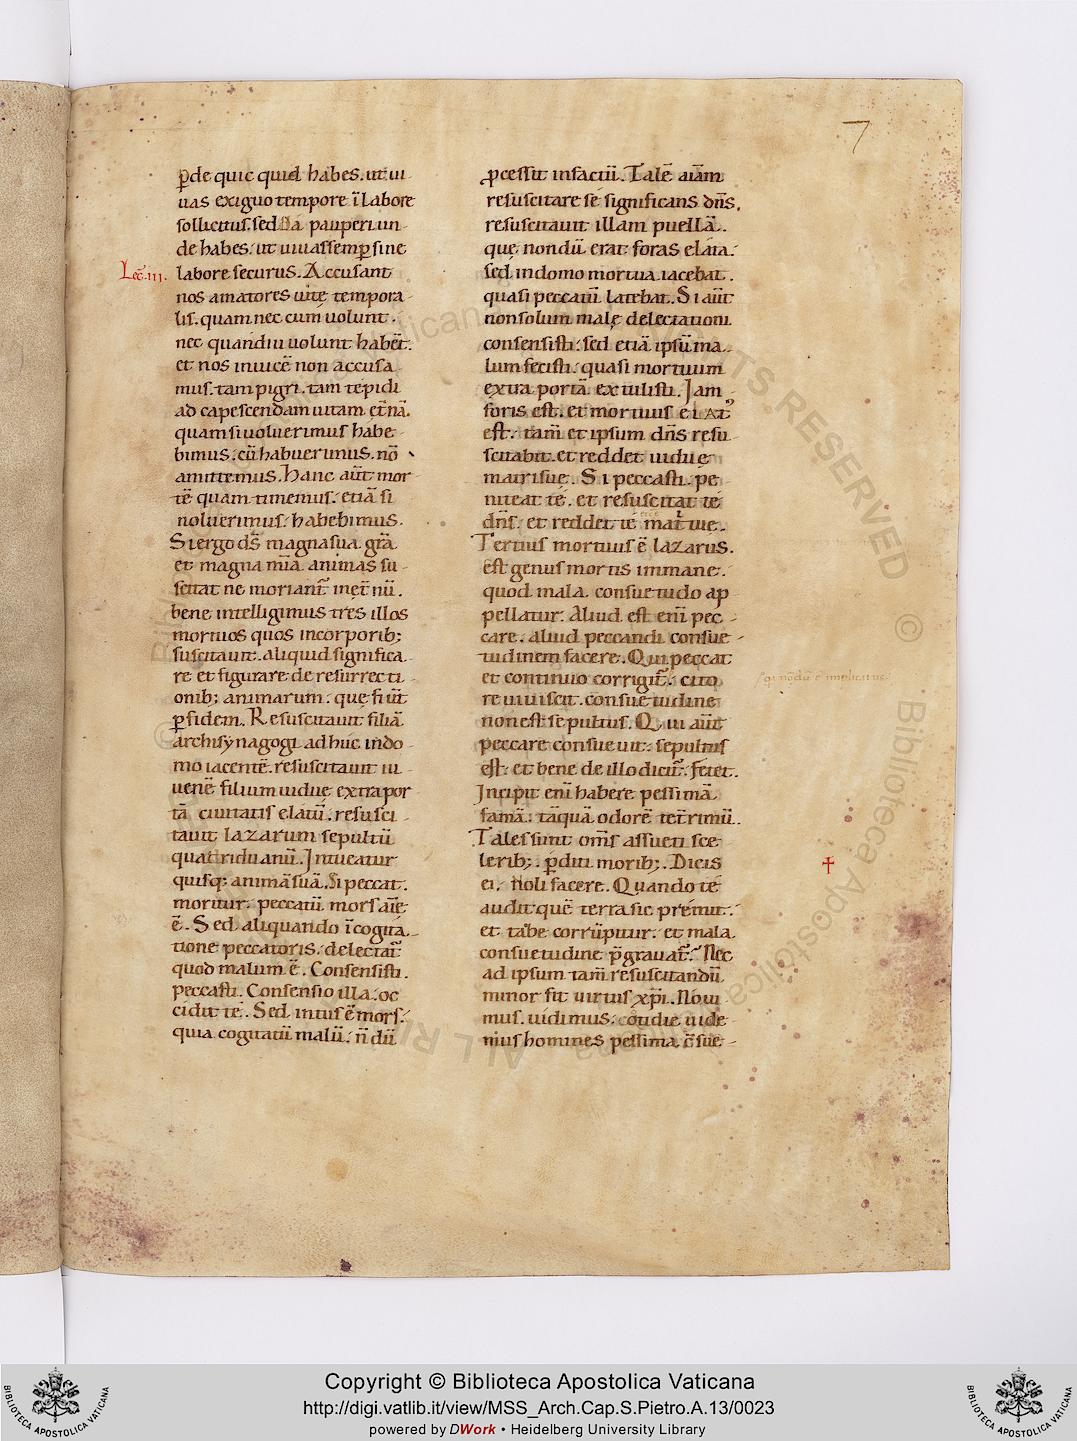 7
ꝑde quic quid habes. ut ui
uas exiguo tempore ĩ labore
sollicitus. sed da pauperi un
de habes. ut uiuas semꝑ sine
Lec̃. iii.
labore securus. Accusant
nos amatores uite tempora-
lis. quam nec cum uolunt.
nec quandiu uolunt habẽt.
et nos inuicẽ non accusa
mus. tam pigri. tam tepidi
ad capescendam uitam et̃nã.
quam si uoluerimus habe-
bimus. cũ habuerimus. nõ
amittemus. Hanc aũt mor
tẽ quam timemus. etiã si
noluerimus. habebimus.
Si ergo ds̃ magna sua gr̃a
et magna mĩa animas su-
scitat ne moriant̃ inet̃nũ.
bene intelligimus tres illos
mortuos quos incorporib;
suscitauit. aliquid significa-
re et figurare de resurrecti
onib; animarum. que fiũt
ꝑ fidem. Resuscitauit filiã
archisynagogi adhuc indo-
mo iacentẽ. resuscitauit iu-
uenẽ filium uidue extra por
tã ciuitatis elatũ. resusci-
tauit lazarum sepultũ
quatriduanũ. Intueatur
quisq; animã suã. Si peccat.
moritur. peccatũ mors aĩẽ
ẽ. Sed aliquando ĩ cogita-
tione peccatoris. delectat̃
quod malum ẽ. Consensisti.
peccasti. Consensio illa. oc
cidit te. Sed intus ẽ mors.
quia cogitatũ malũ. ñ dũ
ꝓcessit infactũ. Talẽ aĩam
resuscitare se significans dñs.
resuscitauit illam puellã.
quę nondũ erat foras elata.
sed indomo mortua iacebat.
quasi peccatũ latebat. Si aũt
non solum malę delectationi
consensisti. sed etiã ipsũ ma
lum fecisti. quasi mortuum
extra portã extulisti. Iam
foris est. et mortuus
est. tam̃ et ipsum dñs resu-
scitabit. et reddet uidue
matri sue. Si peccasti. pe-
niteat te. et resuscitat te
dñs. et reddet te
Tertius mortuus ẽ lazarus.
est genus mortis immane.
quod mala consuetudo ap
pellatur. Aliud est enĩ pec
care. aliud peccandi consue-
tudinem facere. Qui peccat
et continuo corrigit̃. cito
qi nõdũ ẽ implicitus.
reuiuiscit. consuetudine
non est sepultus. Qui aũt
peccare consueuit. sepultus
est. et bene de illo dicit̃. fetet.
Incipit enĩ habere pessimã
famã. tãquã odorẽ tet̃rimũ.
Tales sunt om̃s assueti sce-
lerib;. ꝑditi morib;. Dicis
ei. Noli facere. Quando te
audit quẽ terra sic premit.
et tabe corrũpitur. et mala
consuetudine p̃grauat̃. Nec
ad ipsum tam̃ resuscitandũ
minor fit uirtus xp̃i. Noui
mus. uidimus. cotidie uide-
mus homines pessima c̃sue-
Copyright © Biblioteca Apostolica Vaticana
http://digi.vatlib.it/view/MSS_Arch.Cap.S.Pietro.A.13/0023
powered by DWork • Heidelberg University Library
BIBLIOTECA APOSTOLICA VATICANA
BIBLIOTECA APOSTOLICA VATICANA